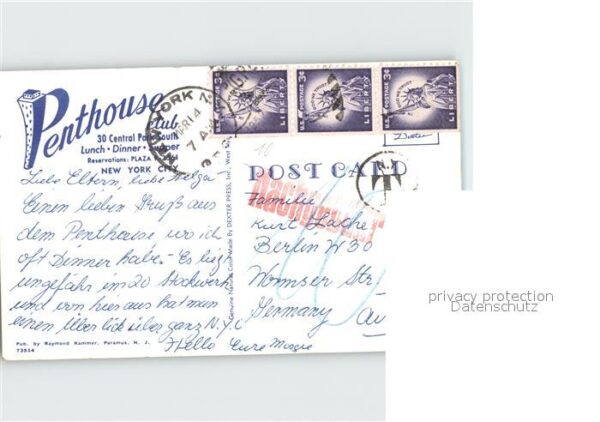 Penthouse
club
30 Central Park South
Lunch • Dinner • Supper
Reservations: PLAZA
NEW YORK CITY
Liebe Eltern, liebe Helga
Einen lieben Gruß aus
dem Penthouse wo ich
oft Dinner habe. Es liegt
ungefähr im 20 Stockwerk
und von hier aus hat man
einen Überblick über ganz N.Y.C
Hello Eure
Pub. by Raymond Kammer, Paramus, N. J.
73514
Genuine Natural Color Made By DEXTER PRESS, INC., West
YORK N.
MAR 14
7 AM
U.S. POSTAGE 3¢
LIBERTY
U.S. POSTAGE 3¢
LIBERTY
U.S. POSTAGE 3¢
LIBERTY
Dexter
POST CARD
N.Y.
T
Nachgebühr
Familie
Kurt
Berlin W 30
Wormser Str
Germany
privacy protection
Datenschutz